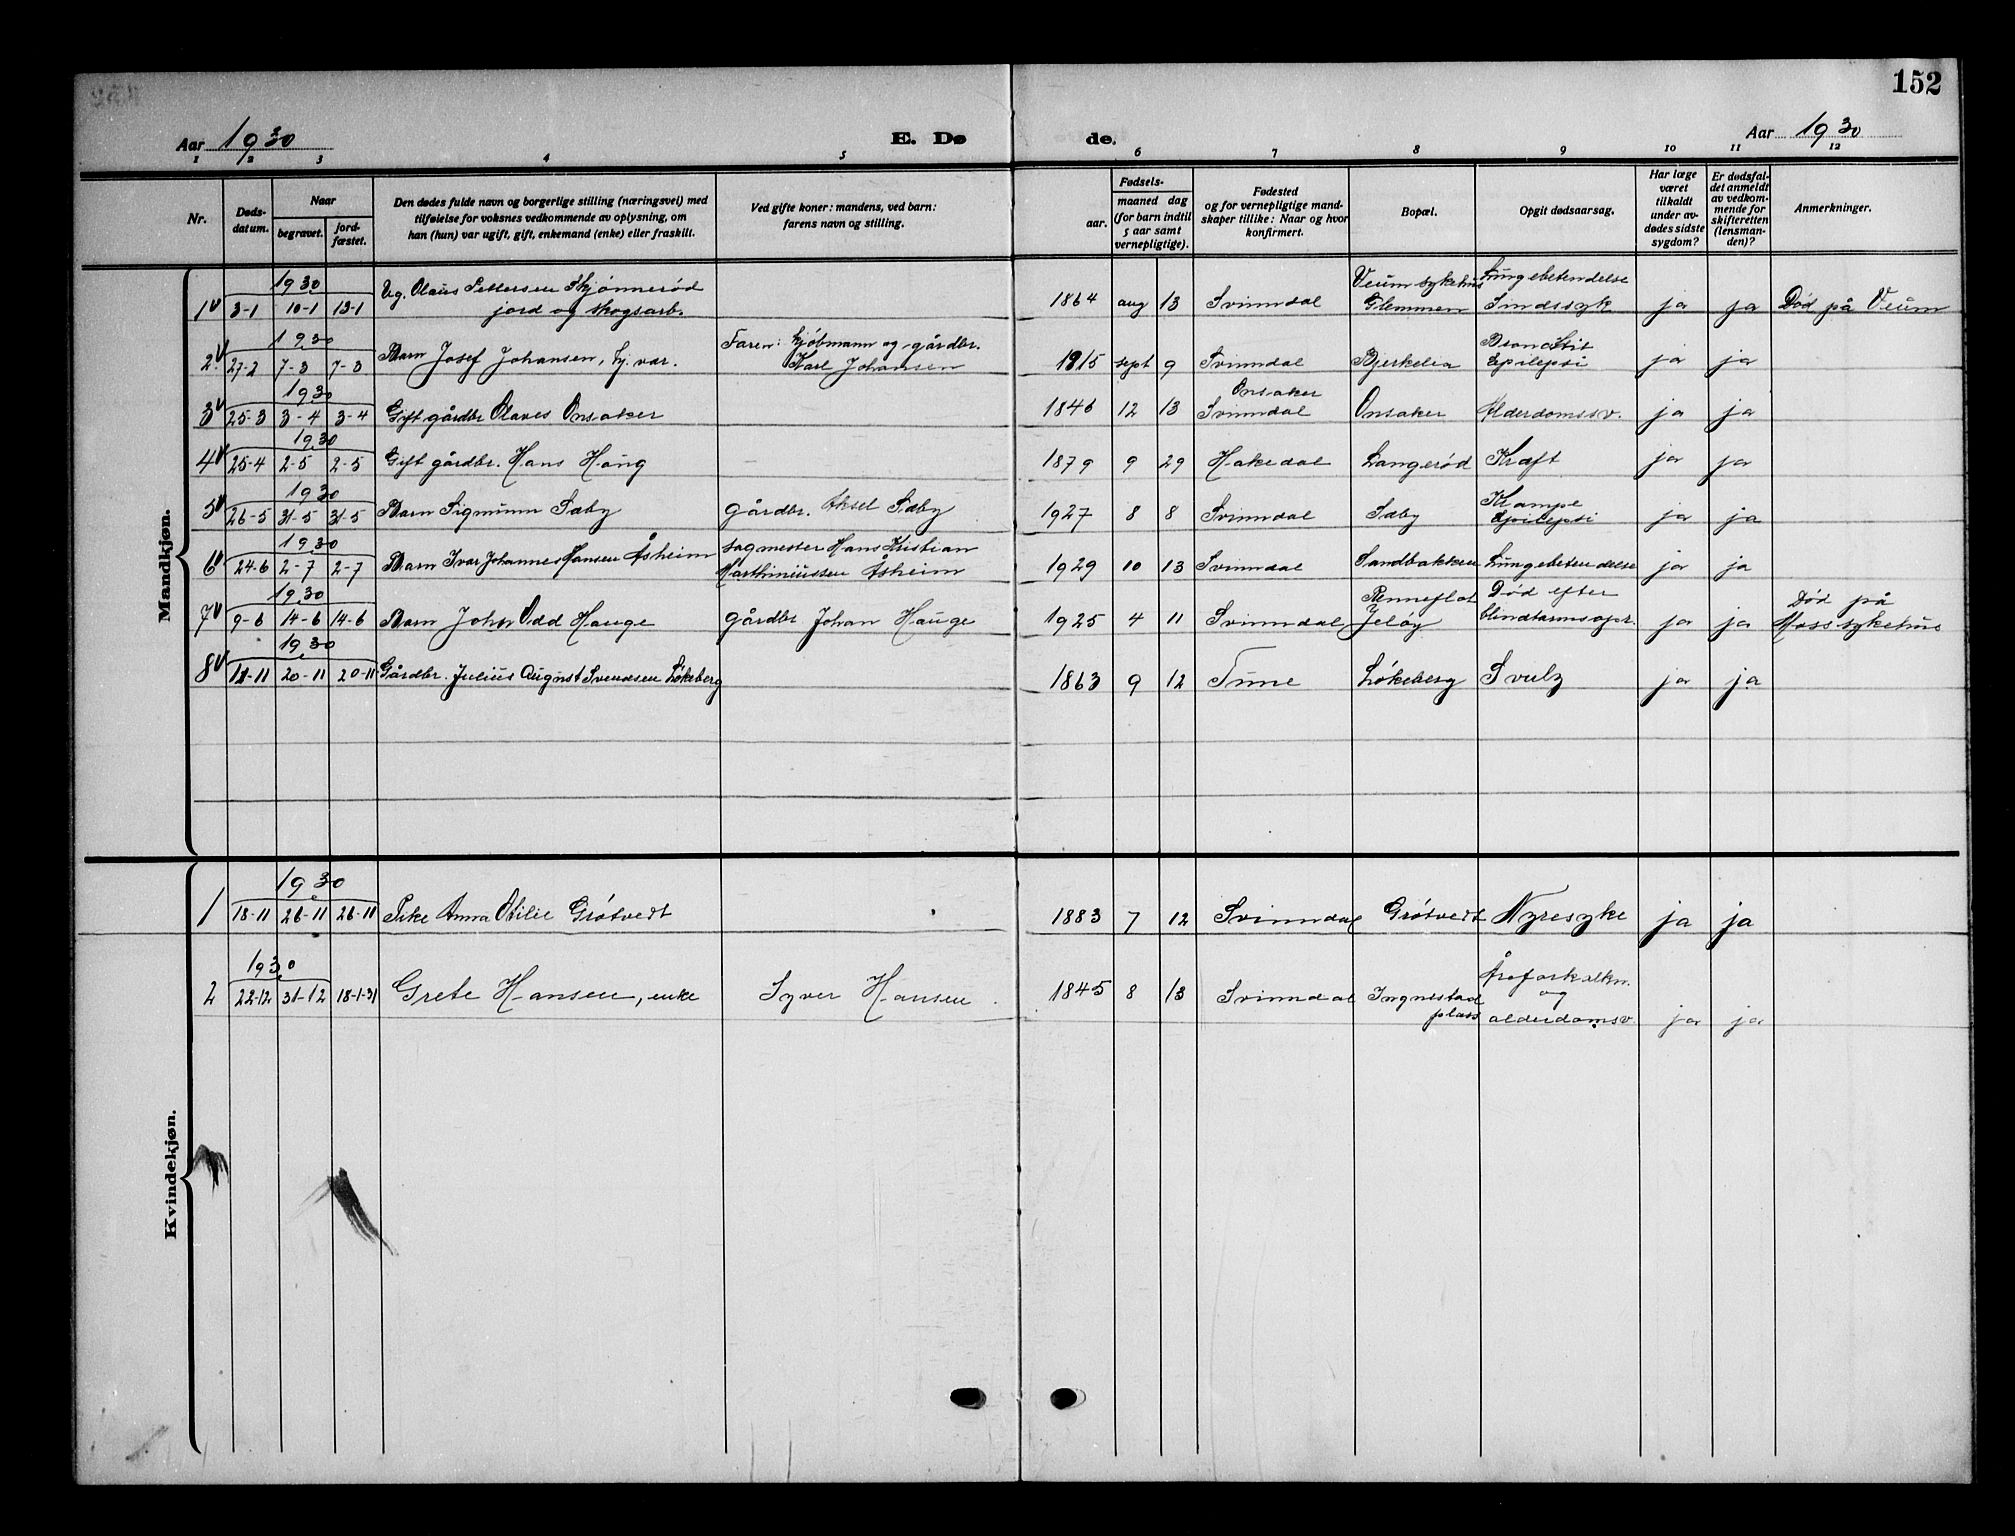 152
Aar 1930 E. Dø de. Aar 1930
1 2 3 4 5 6 7 8 9 10 11 12
Nr.
Døds-
datum.
Naar
begravet.
jord-
fæstet.
Den dødes fulde navn og borgerlige stilling (næringsvei) med
tilføielse for voksnes vedkommende av oplysning, om
han (hun) var ugift, gift, enkemand (enke) eller fraskilt.
Ved gifte koner: mandens, ved barn:
farens navn og stilling.
Fødsels-
aar.
maaned dag
(for barn indtil
5 aar samt
vernepligtige).
Fødested
og for vernepligtige mand-
skaper tillike: Naar og hvor
konfirmert.
Bopæl.
Opgit dødsaarsag.
Har læge
været
tilkaldt
under av-
dødes sidste
sygdom?
Er dødsfal-
det anmeldt
av vedkom-
mende for
skifteretten
(lensman-
den)?
Anmerkninger.
Mandkjøn.
1930 Ug. Olaus Pettersen Skjønnerød Veum sykehus Lungebetendelse
1 3-1 10-1 13-1 jord og skogsarb. 1864 aug 13 Svinndal Glemmen Sindssyk ja ja Død på Veum
1930 Faren: kjøbmann og gårdbr. Bronchit
2 27-2 7-3 7-3 Barn Josef Johansen, hj. var. Karl Johansen 1915 sept 9 Svinndal Bjerkelia Epilepsi ja ja
1930 Onsaker
3 25-3 3-4 3-4 Gift gårdbr Olaves Onsaker 1846 12 13 Svinndal Onsaker Alderdomssv. ja ja
1930
4 25-4 2-5 2-5 Gift gårdbr. Hans Haug 1879 9 29 Hakedal Langerød Kræft ja ja
1930 Krampe
5 26-5 31-5 31-5 Barn Sigmunn Sæby gårdbr. Aksel Sæby 1927 8 8 Svinndal Sæby Epilepsi ja ja
1930 sagmester Hans Kristian
6 24-6 2-7 2-7 Barn Ivar Johannes Hansen Åsheim Marthiniussen Åsheim 1929 10 13 Svinndal Sandbakken Lungebetendelse ja ja
1930 Renneflot Død efter Død på
7 9-6 14-6 14-6 Barn Johan Odd Hauge gårdbr Johan Hauge 1925 4 11 Svinndal Jeløy blindtarmsopr. ja ja Moss sykehus
1930
8 12-11 20-11 20-11 Gårdbr. Julius August Svendsen Løkeberg 1863 9 12 Tune Løkeberg Svulz ja ja
Kvindekjøn.
1930
1 18-11 26-11 26-11 Pike Anna Otilie Grøtvedt 1883 7 12 Svinndal Grøtvedt Nyresyke ja ja
1930 Åreforkalkn.
2 22-12 31-12 18-1-31 Grete Hansen, enke Syver Hansen 1845 8 13 Svinndal Ingnestad og
plass alderdomsv. ja ja